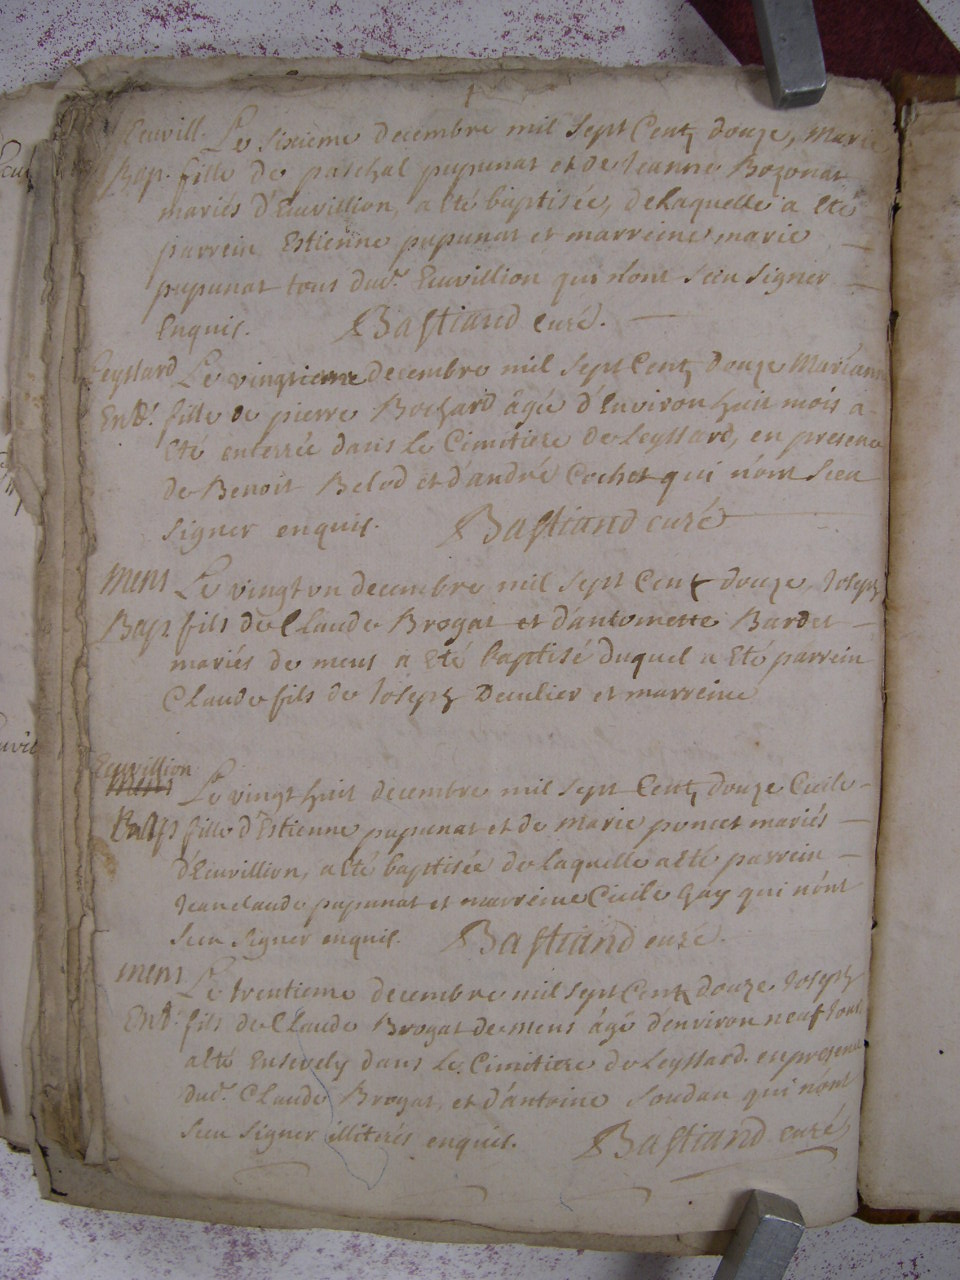 Leuvill. Le sixieme decembre mil sept Cent douze, Marie
Bap. fille de paschal pupunat et de Jeanne Bozonat
mariés d'Leuvillion, a eté baptisée, de laquelle a eté
parrein Estienne pupunat et marreine marie
pupunat tous dud. Leuvillion qui n'ont sceu signer
enquis. Bastiand curé.
Leyssard Le vingtieme decembre mil sept Cent douze Marianne
Ent. fille de pierre Bochard âgée d'environ huit mois a
eté enterrée dans le Cimitiere de Leyssard, en presence
de Benoit Belod et d'andré Cochet qui n'ont sceu
signer enquis. Bastiand curé
mens Le vingt un decembre mil sept Cent douze, Joseph
Bap. fils de Claude Brogat et d'antoinette Bardet
mariés de mens a eté baptisé duquel a eté parrein
Claude fils de Joseph et marreine
Leuvillion
mens Le vingt huit decembre mil sept Cent douze Cecile
Bap. fille d'Estienne pupunat et de marie poncet mariés
d'Leuvillion, a eté baptisée de laquelle a eté parrein
Jean claude pupunat et marreine Cecile Gay qui n'ont
sceu signer enquis. Bastiand curé.
mens Le trentieme decembre mil sept Cent douze Joseph
Ent. fils de Claude Brogat de mens âgé d'environ neuf jours
a eté Ensevely dans le Cimitiere de Leyssard. en presence
dud. Claude Brogat, et d'antoine Soudan qui n'ont
sceu signer illitrés enquis. Bastiand curé